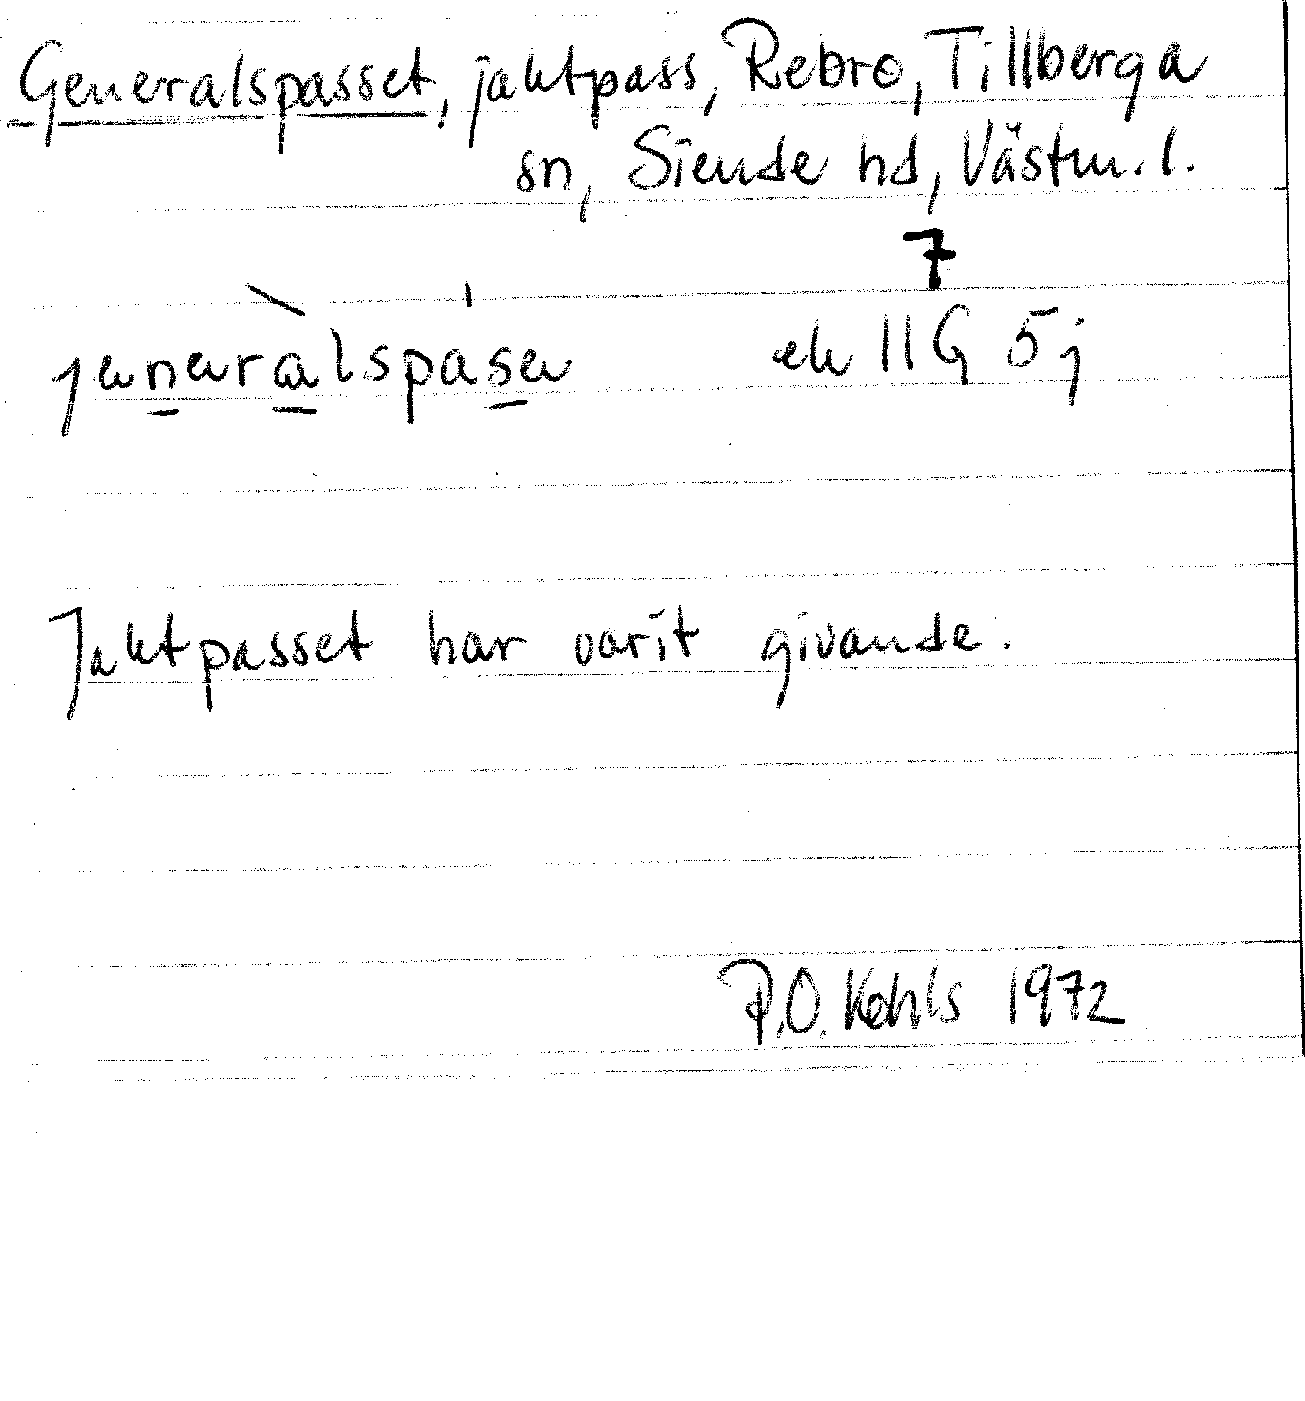 Generalspasset, jaktpass, Rebro, Tillberga
sn, Siende hd, Västm. l.
7
jeneralspasen ek 11G 5j
Jaktpasset har varit givande.
P.O. Kohls 1972